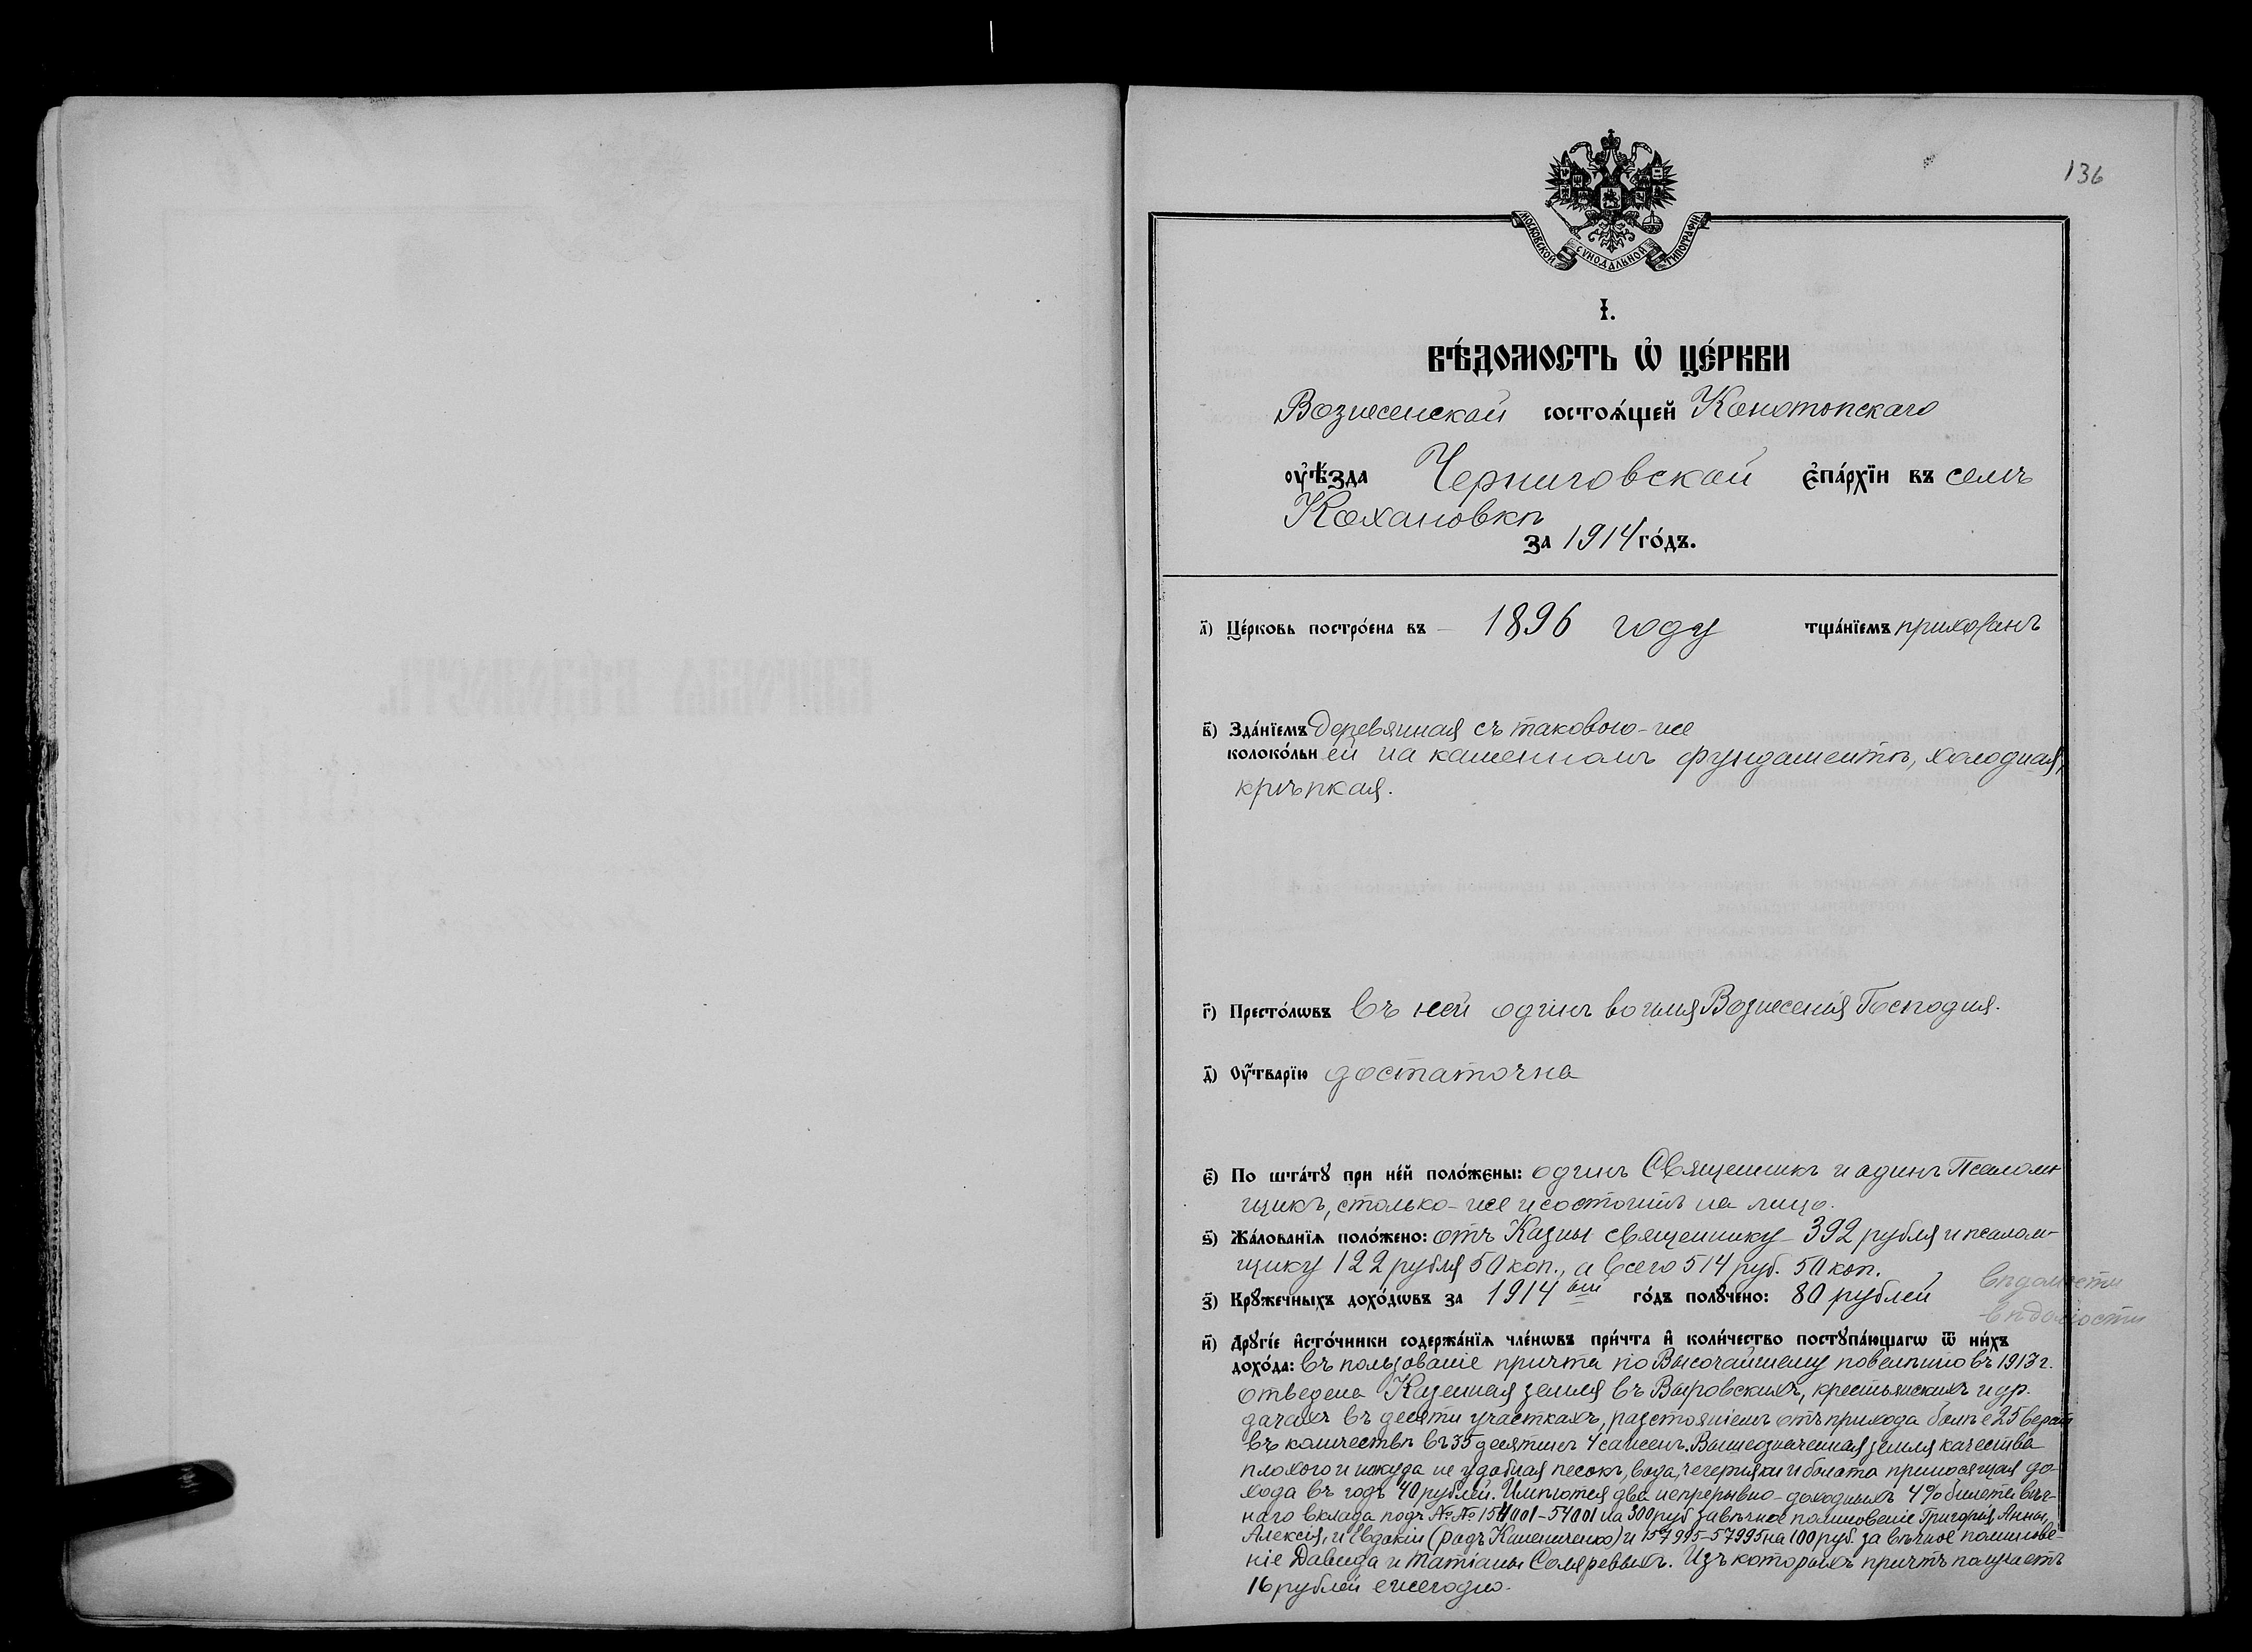 136
МОСКОВСКОЙ СѴНОДАЛЬНОЙ ТИПОГРАФІИ
І.
ВѢ́ДОМОСТЬ Ѡ҆ ЦЕ́РКВИ
Вознесенской состоѧ́щей Конотопскаго
ᲂу҆ѣ́зда Черниговской є҆па́рхїи въ селѣ
Кохановкѣ
за 1914 го́дъ.
а҃) Це́рковь постро́ена въ – 1896 году тща́нїемъ прихожанъ
в҃) Зда́нїемъ деревянная съ таковою-же
колоко́льней на каменномъ фундаментѣ, холодная,
крѣпкая.
г҃) Престо́лѡвъ въ ней одинъ во имя Вознесенія Господня.
д҃) Оу҆́тварїю достаточна
є҃) По шта́тꙋ при не́й поло́жены: одинъ Священникъ и одинъ Псалом-
щикъ, столько-же и состоитъ на лицо.
ѕ҃) Жа́лованїѧ поло́жено: отъ Казны священнику – 392 рубля и псалом-
щику 122 рубля 50 коп., а всего 514 руб. 50 коп.
вѣдомости
з҃) Крꙋ́жечныхъ дохо́дѡвъ за 1914 ый го́дъ полꙋ́чено: 80 рублей
вѣдомости
и҃) Дрꙋгі́е и҆сто́чники содержа́нїѧ чле́нѡвъ при́чта и҆ коли́чество постꙋпа́ющагѡ ѿ ни́хъ
дохо́да: въ пользованіе причта по Высочайшему повелѣнію въ 1913 г.
отведена Казенная земля въ Выровскихъ, крестьянскихъ и др.
дачахъ въ десяти участкахъ, разстояніемъ отъ прихода болѣе 25 верстъ
въ количествѣ въ 35 десятин 4 сажен. Вышеозначенная земля качества
плохого и никуда не удобная песокъ, вода, и болота приносящая до-
хода въ годъ 40 рублей. Имѣются два непрерывно-доходныхъ 4% билета вѣч-
наго вклада подъ №№ 154001–54001 на 300 руб за вѣчное поминовеніе Григорія, Анны,
Алексія, и Евдокіи (родъ ) и 157995–57995 на 100 руб. за вѣчное поминове-
ніе Давида и Татіаны . Изъ которыхъ причтъ получаетъ
16 рублей ежегодно.